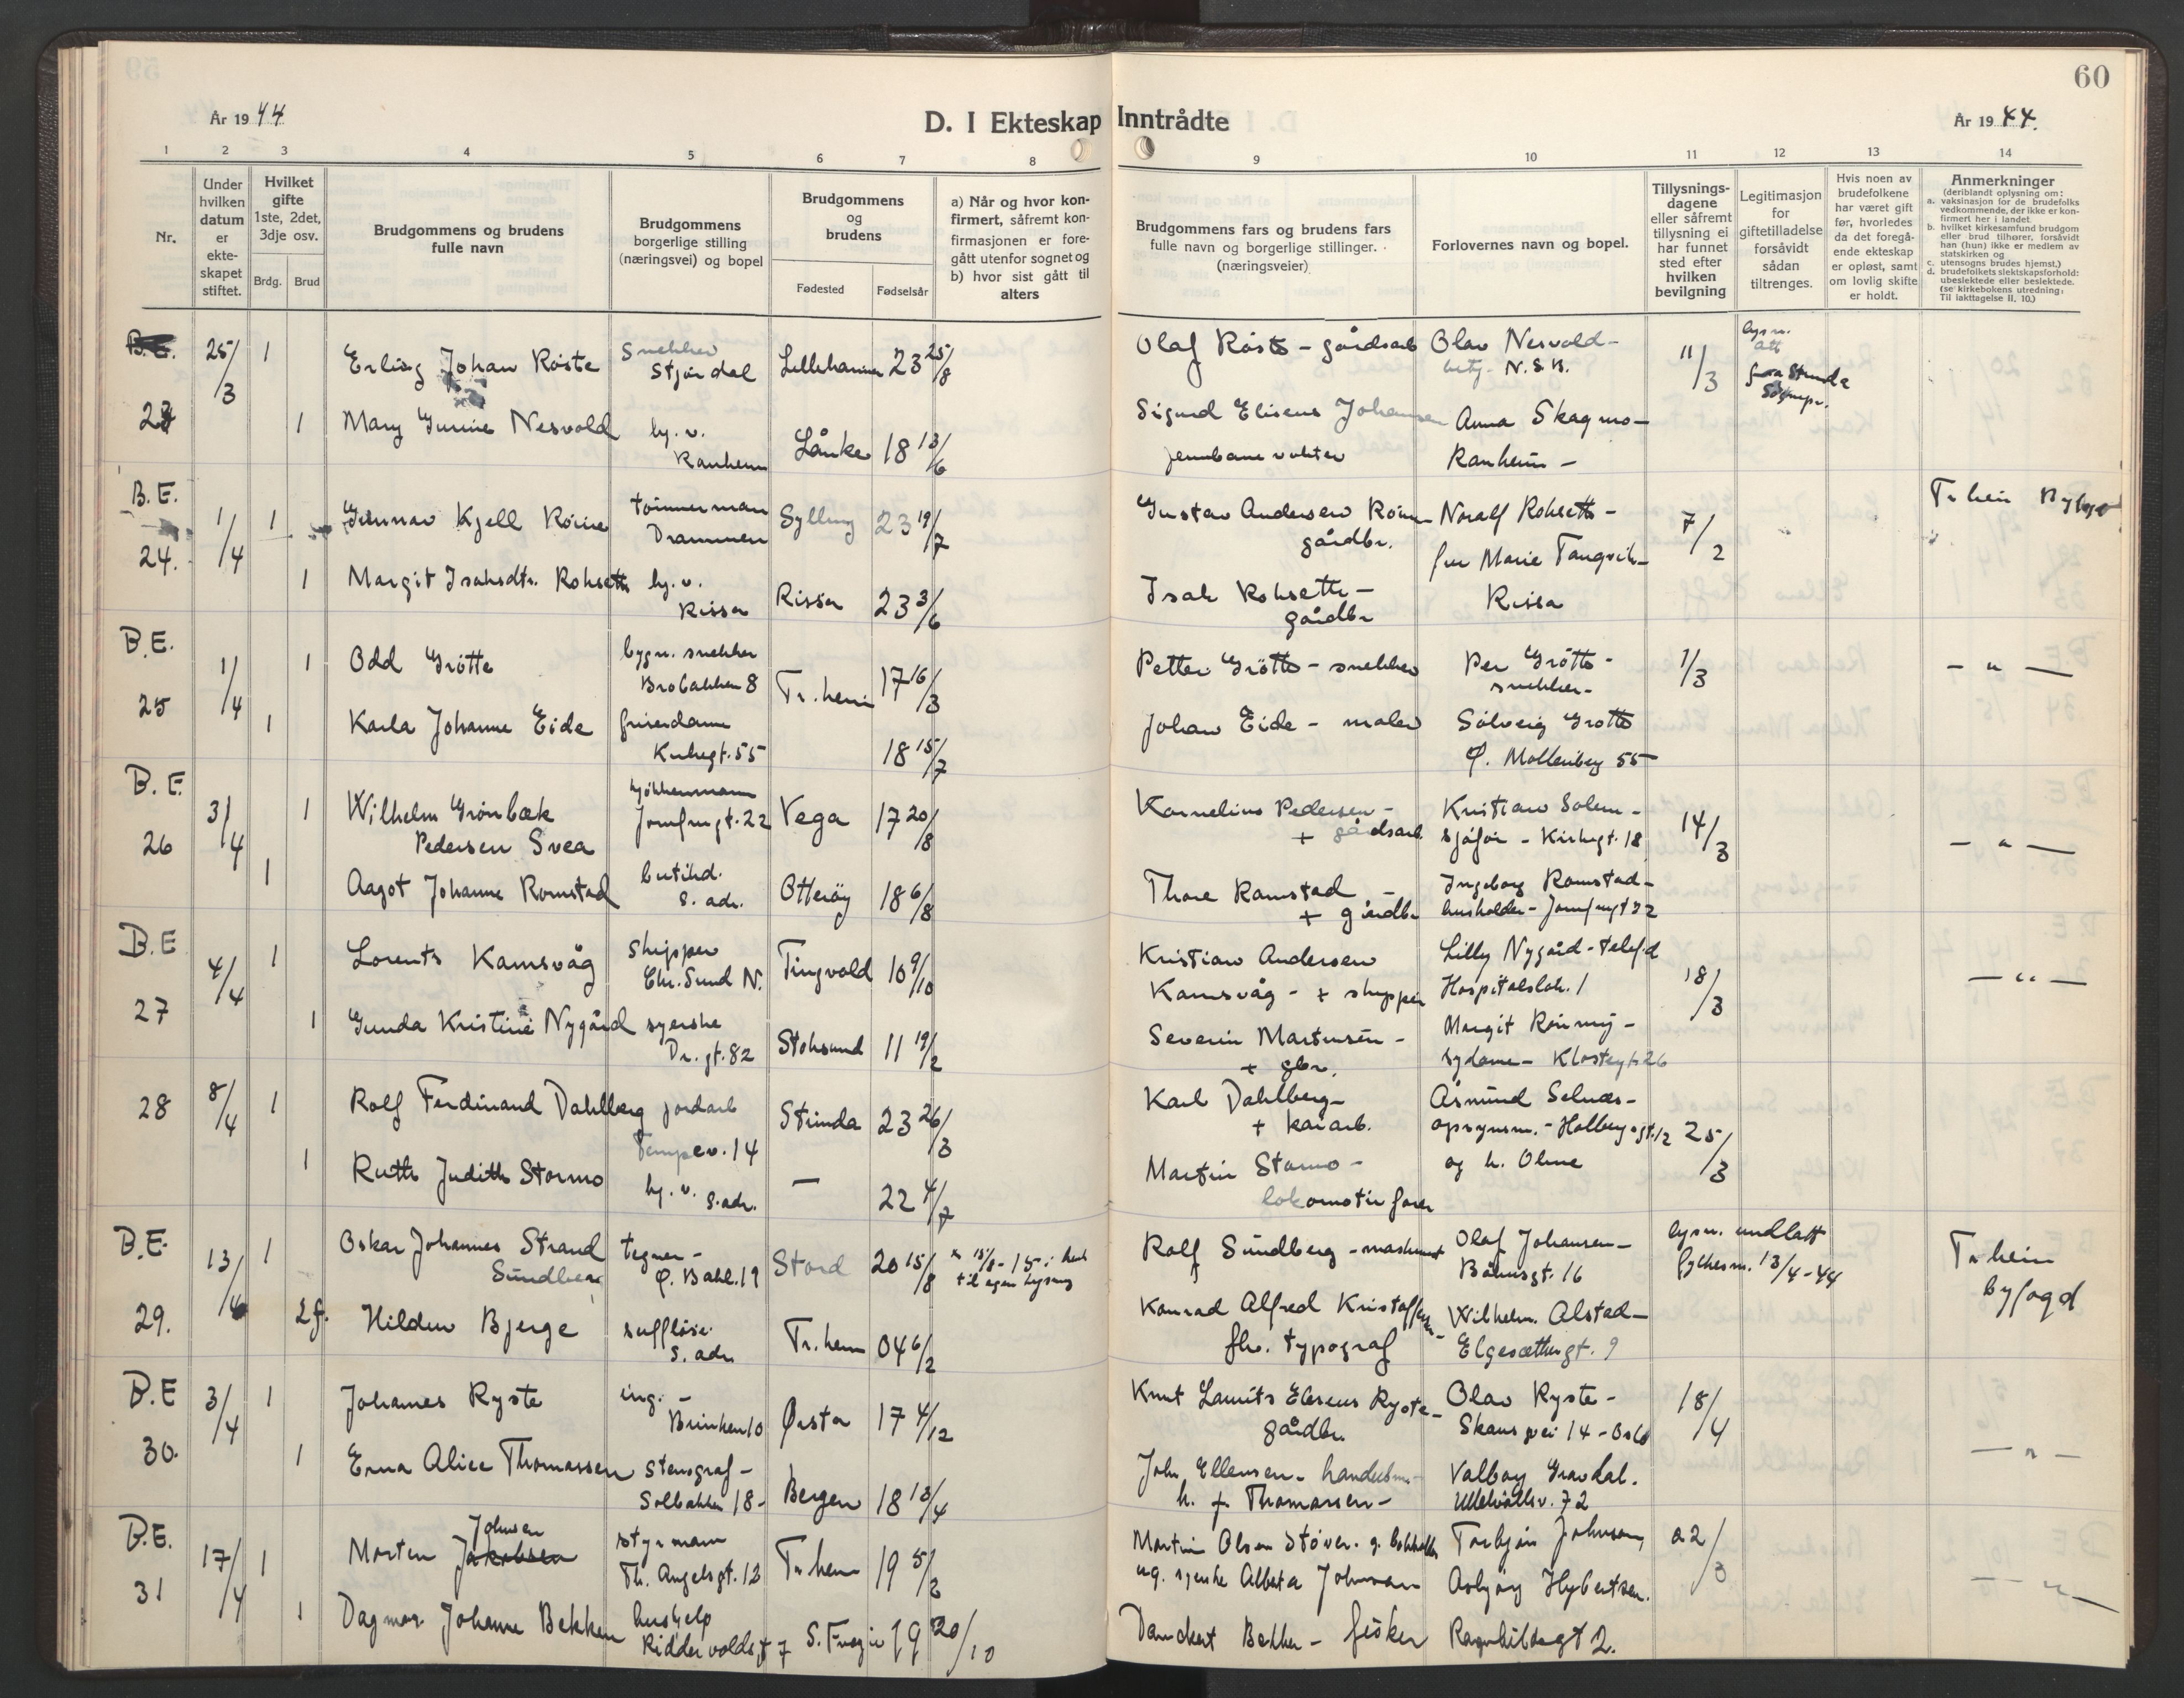 59
60
År 1944
D. I Ekteskap Inntrådte
År 1944.
1 2 3 4 5 6 7 8 9 10 11 12 13 14
Nr.
Under hvilken datum er ekte- skapet stiftet.
Hvilket gifte 1ste, 2det, 3dje osv.
Brdg. Brud
Brudgommens og brudens fulle navn
Brudgommens borgerlige stilling (næringsvei) og bopel
Brudgommens og brudens
Fødested
Fødselsår
a) Når og hvor kon- firmert, såfremt kon- firmasjonen er fore- gått utenfor sognet og b) hvor sist gått til alters
Brudgommens fars og brudens fars fulle navn og borgerlige stillinger. (næringsveier)
Forlovernes navn og bopel.
Tillysnings- dagene eller såfremt tillysning ei har funnet sted efter hvilken bevilgning
Legitimasjon for giftetilladelse forsåvidt sådan tiltrenges.
Hvis noen av brudefolkene har været gift før, hvorledes da det foregå- ende ekteskap er opløst, samt om lovlig skifte er holdt.
Anmerkninger
(deriblandt oplysning om:
a. vaksinasjon for de brudefolks vedkommende, der ikke er kon- firmert her i landet.
b. hvilket kirkesamfund brudgom eller brud tilhører, forsåvidt han (hun) ikke er medlem av statskirken og
c. utensogns brudes hjemst.)
d. brudefolkets slektskapsforhold: ubeslektede eller beslektede. (se kirkebokens utredning: Til iakttagelse II, 10.)
25/3 1 Erling Johan Røste Snekker Stjørdal Lillehammer 23 25/8 Olaf Røste - gårdsarb Olav Nesvold - N.S.B. 11/3 lysn. att fra Strinda
23 1 Mary Gurine Nesvold hj. v. Ranheim Lånke 18 13/6 Sigurd Eliseus Johansen jernbanevokter Anna Skagmo - Ranheim -
B.E. 24. 1/4 1 Gunnar Kjell tømmerman Drammen Sylling 23 19/7 Gustav Andersen gårdbr. Noralf Rokseth - 7/2 Tr.heim Byfogd
1 Margit Isaksdtr. Rokseth hj. v. Rissa Rissa 23 3/6 Isak Rokseth - gårdbr fru Marie Tangvik - Rissa
B.E. 25 1/4 1 Odd Grøtte bygn. snekker Brobakken 8 Tr.heim 17 16/3 Petter Grøtte - snekker Per Grøtte - snekker - 1/3 - " -
1 Karla Johanne Eide frisørdame Kirkegt. 55 18 15/7 Johan Eide - maler Solveig Grøtte Ø. Møllenberg 55
B.E. 26 3/4 1 Wilhelm Grønbæk Pedersen Svea Jomfrugt. 22 Vega 17 20/8 Kornelius Pedersen - + gårdsarb. Kristian Solem - sjåfør - Kirkegt. 18 14/3 - " -
1 Aagot Johanne Romstad butikd. s. adr. Otterøy 18 6/8 Thore Romstad - + gårdbr Ingeborg Romstad - husholder - Jomfrugt 22
B.E 27 4/4 1 Lorents Kamsvåg skipper Chr.Sund N. Tingvold 10 9/10 Kristian Andersen Kamsvåg - + skipper Lilly Nygård - telef.d Hospitalsløk. 1 18/3 - " -
1 Gunda Kristine Nygård syerske Dr. gt. 82 Stoksund 11 19/2 Severin Martinsen - + gbr. Margit - sydame - Klostergt. 26
28 8/4 1 Rolf Ferdinand Dahlberg jordarb Tempev. 14 Strinda 23 26/3 Karl Dahlberg - + kaiarb. Åsmund Selnæs - opsynsm. - Holbergsgt. 12 25/3
1 Ruth Judith Stormo hj. v. s. adr. - 22 4/7 Martin Stormo - lokomotivfører og h. Oline
B.E. 29. 13/4 1 Oskar Johannes Strand Sundberg tegner - Ø. Bakl. 19 Stord 20 15/8 til egen lysning Rolf Sundberg - maskinist Olaf Johansen - Båhusgt. 16 lysn. undlatt fylkesm. 13/4-44 Tr.heim byfogd
2 f. Hildur Bjerge sufflöse s. adr Tr.heim 04 6/2 Konrad Alfred Kristoffersen - fhv. typograf Wilhelm. Alstad - Elgesæthergt. 9
B.E 30. 3/4 1 Johannes Ryste ing. - Brinken 10 Ørsta 17 4/12 Knut Laurits Eleseus Ryste - gårdbr. Olav Ryste - vei 14 - Oslo 18/4 - " -
1 Erna Alice Thomassen stenograf - Solbakken 18 - Bergen 18 13/4 John Ellensen - h. f. Thomassen - Valborg Gravdal. Ullevålsv. 72
B.E. 31 17/4 1 Morten Johnsen Jakobsen styrmann Th. Angelsgt. 12 Tr.heim 19 5/2 Martin Olsen Støver. g. ug. syerske Alberta Johnsen Torbjørn Johnsen, 22/3 - " -
1 Dagmar Johanne Bekken hushjelp Riddervoldsgt 7 19 20/10 Danckert Bekken - fisker Asbjørg Hybertsen. Ragnhildsgt 2.